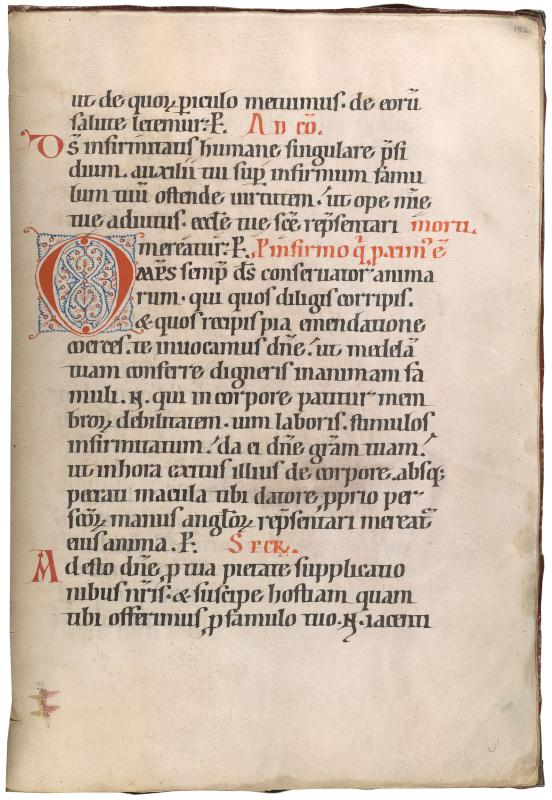 ut de quoꝝ ꝑiculo metuimus. de eoꝝ̄
salute letemur: P̄. Ad cō.
Ds̄ infirmitatis humane singulare p̄si
dium. auxilii tui sup̄ infirmum famu
lum tuū ostende uirtutem. ut ope mīe
tue adiutus. eccl̄e tue sc̄e rep̄sentari
mereatur: P̄. P infirmo q̄ ꝓximꝰ ē morti.
Omp̄s semp̄ ds̄ conseruator anima
rum. qui quos diligis corripis.
& quos recipis pia emendatione
coerces. te inuocamus dn̄e. ut medelā
tuam conferre digneris in animam fa
muli. N. qui in corpore patitur mem
broꝝ debilitatem. uim laboris. stimulos
infirmitatum. da ei dn̄e gr̄am tuam.
ut in hora exitus illius de corpore. absq;
peccati macula tibi datore ꝓprio per
sc̄oꝝ manus angl̄oꝝ rep̄sentari mereat᷑
eius anima. P̄. Secr̄.
Adesto dn̄e ꝓ tua pietate supplicatio
nibus nr̄is. & suscipe hostiam quam
tibi offerimus ꝓ famulo tuo. N. iacenti